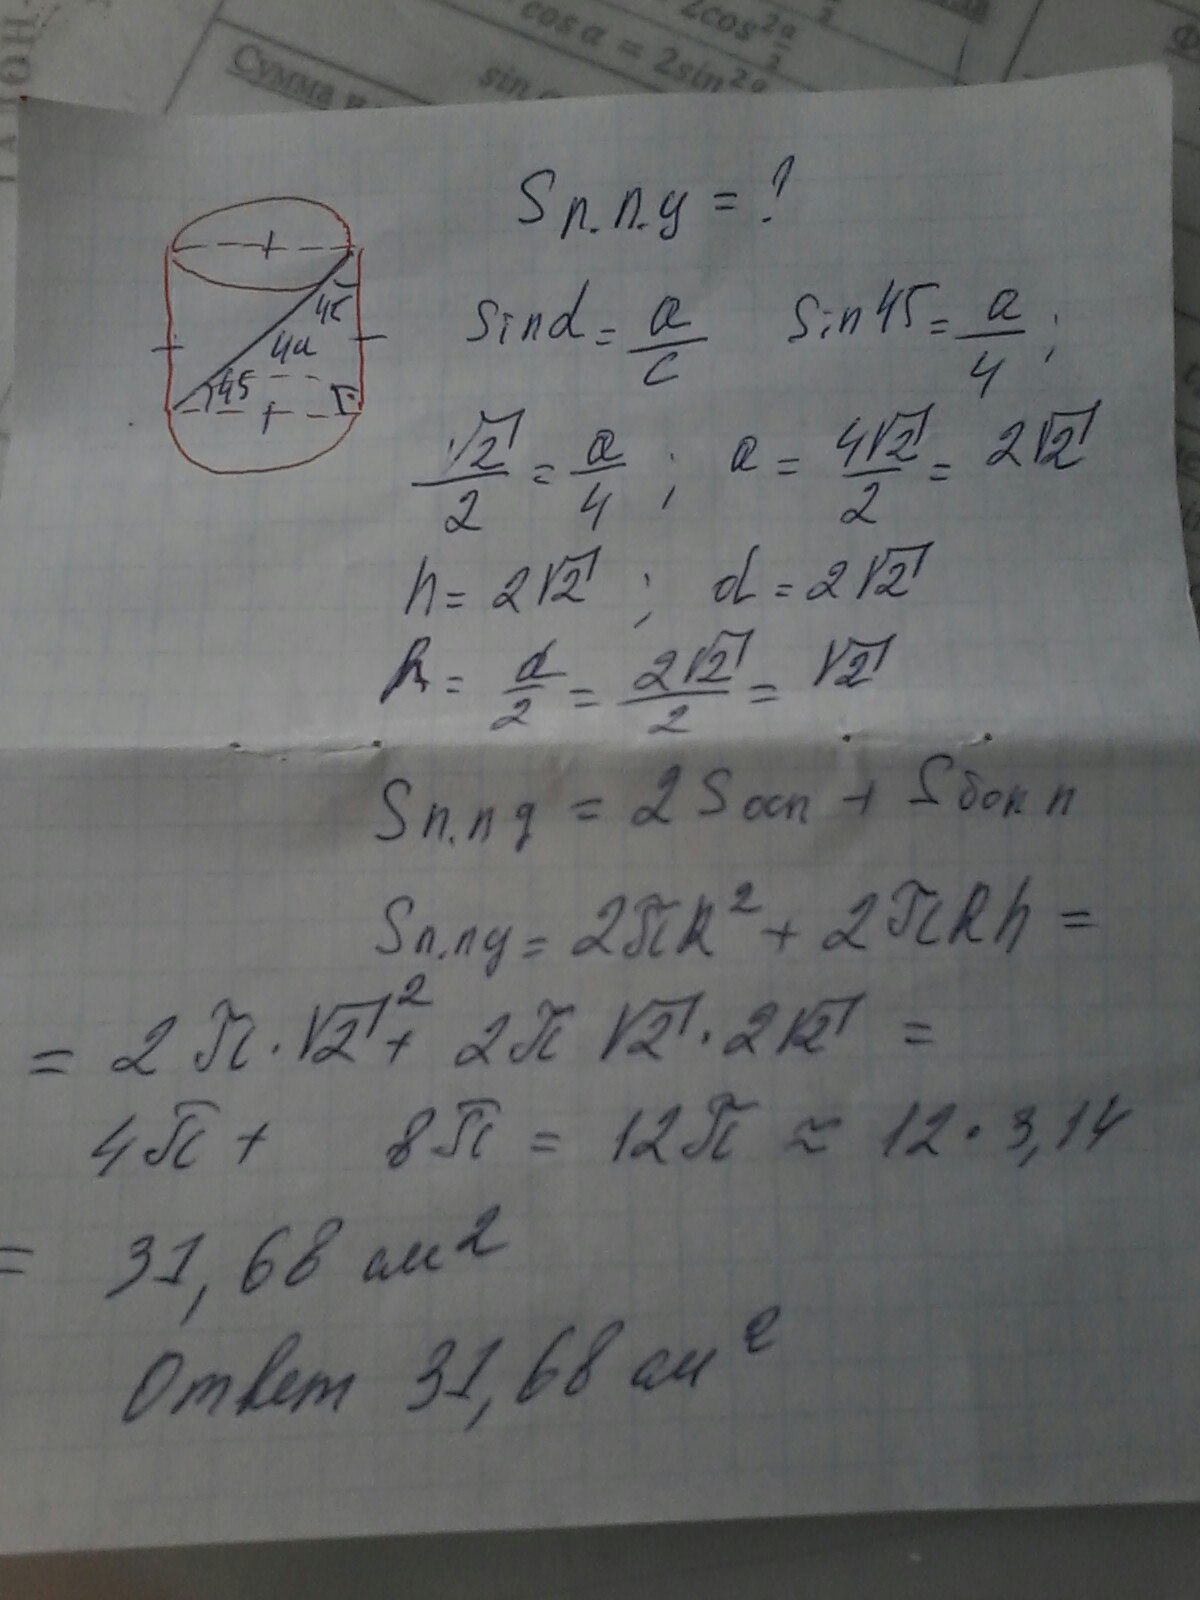 2cos²a/2
cos a = 2sin²a/2
Сумма и
sin
S п.п.ц = ?
45
4см
45
sin d = a/c   sin 45 = a/4 ;
√2/2 = a/4 ; a = 4√2/2 = 2√2
h = 2√2 ; d = 2√2
R = d/2 = 2√2/2 = √2
S п.п ц = 2S осн + S бок п
S п.пц = 2πR² + 2πRh =
= 2π · √2² + 2π √2 · 2√2 =
4π + 8π = 12π ≈ 12 · 3,14
= 31,68 см²
Ответ 31,68 см²